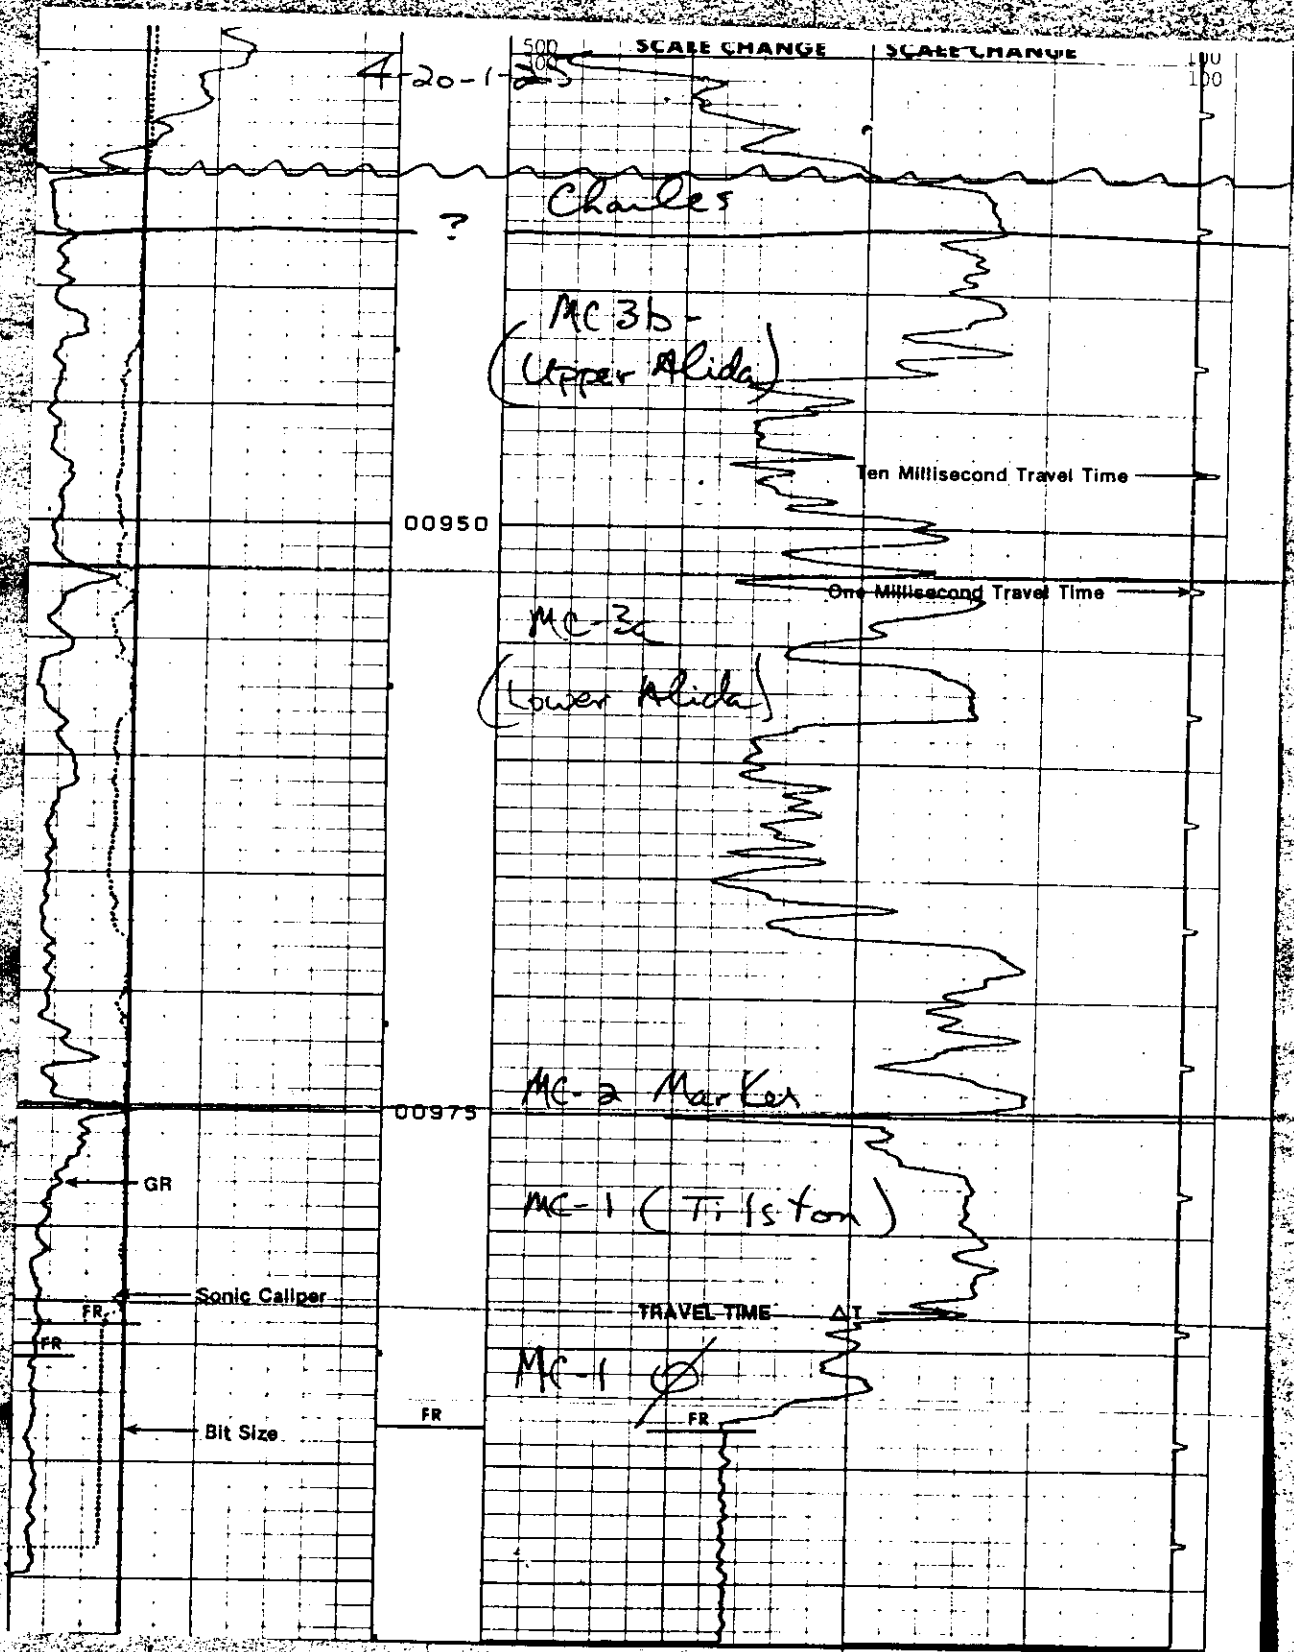 500 SCALE CHANGE SCALE CHANGE 100
100
4-20-1-25
Charles
?
MC 3b-
(Upper Alida)
Ten Millisecond Travel Time
00950
One Millisecond Travel Time
MC-3a
(Lower Alida)
MC-2 Marker
00975
GR
MC-1 (Tilston)
Sonic Caliper
FR
TRAVEL TIME ΔT
FR
MC-1 Ø
FR
FR
Bit Size